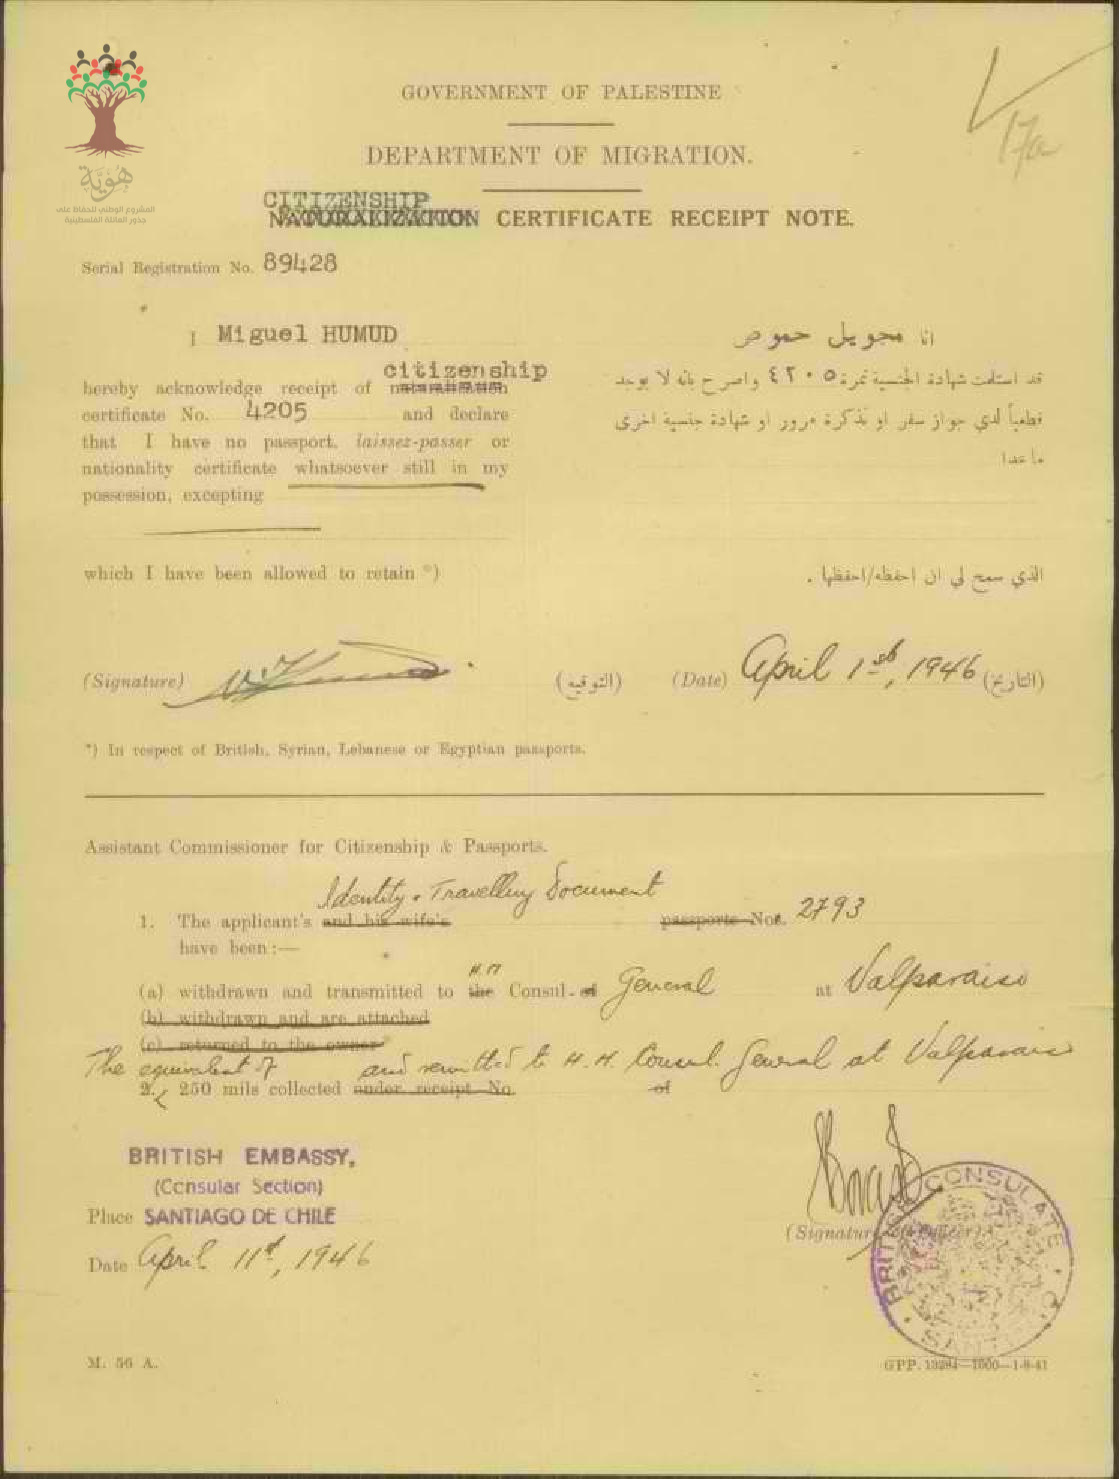 17a
هوية
المشروع الوطني للحفاظ على
جذور العائلة الفلسطينية
GOVERNMENT OF PALESTINE
DEPARTMENT OF MIGRATION.
CITIZENSHIP
NATURALIZATION CERTIFICATE RECEIPT NOTE.
Serial Registration No. 89428
I Miguel HUMUD
citizenship
hereby acknowledge receipt of naturalization
certificate No. 4205 and declare
that I have no passport, laissez-passer or
nationality certificate whatsoever still in my
possession, excepting
which I have been allowed to retain *)
انا مجويل حموض
قد استلمت شهادة الجنسية نمرة ٤٢٠٥ واصرح بانه لا يوجد
قطعياً لدي جواز سفر او تذكرة مرور او شهادة جنسية اخرى
ما عدا
الذي سمح لي ان احفظه/احفظها .
(Signature) (التوقيع) (Date) April 1st, 1946 (التاريخ)
*) In respect of British, Syrian, Lebanese or Egyptian passports.
Assistant Commissioner for Citizenship & Passports.
Identity & Travelling Document
1. The applicant's and his wife's passports Nos. 2793
have been :—
H.M
(a) withdrawn and transmitted to the Consul. of General at Valparaiso
(b) withdrawn and are attached
(c) returned to the owner
The equivalent of and remitted to H. M. Consul. General at Valparaiso
2. 250 mils collected under receipt No. of
BRITISH EMBASSY,
(Consular Section)
Place SANTIAGO DE CHILE
Date April 11st, 1946
(Signature of Officer)
BRITISH CONSULATE
M. 56 A.
GPP. 13284—1000—1-8-41